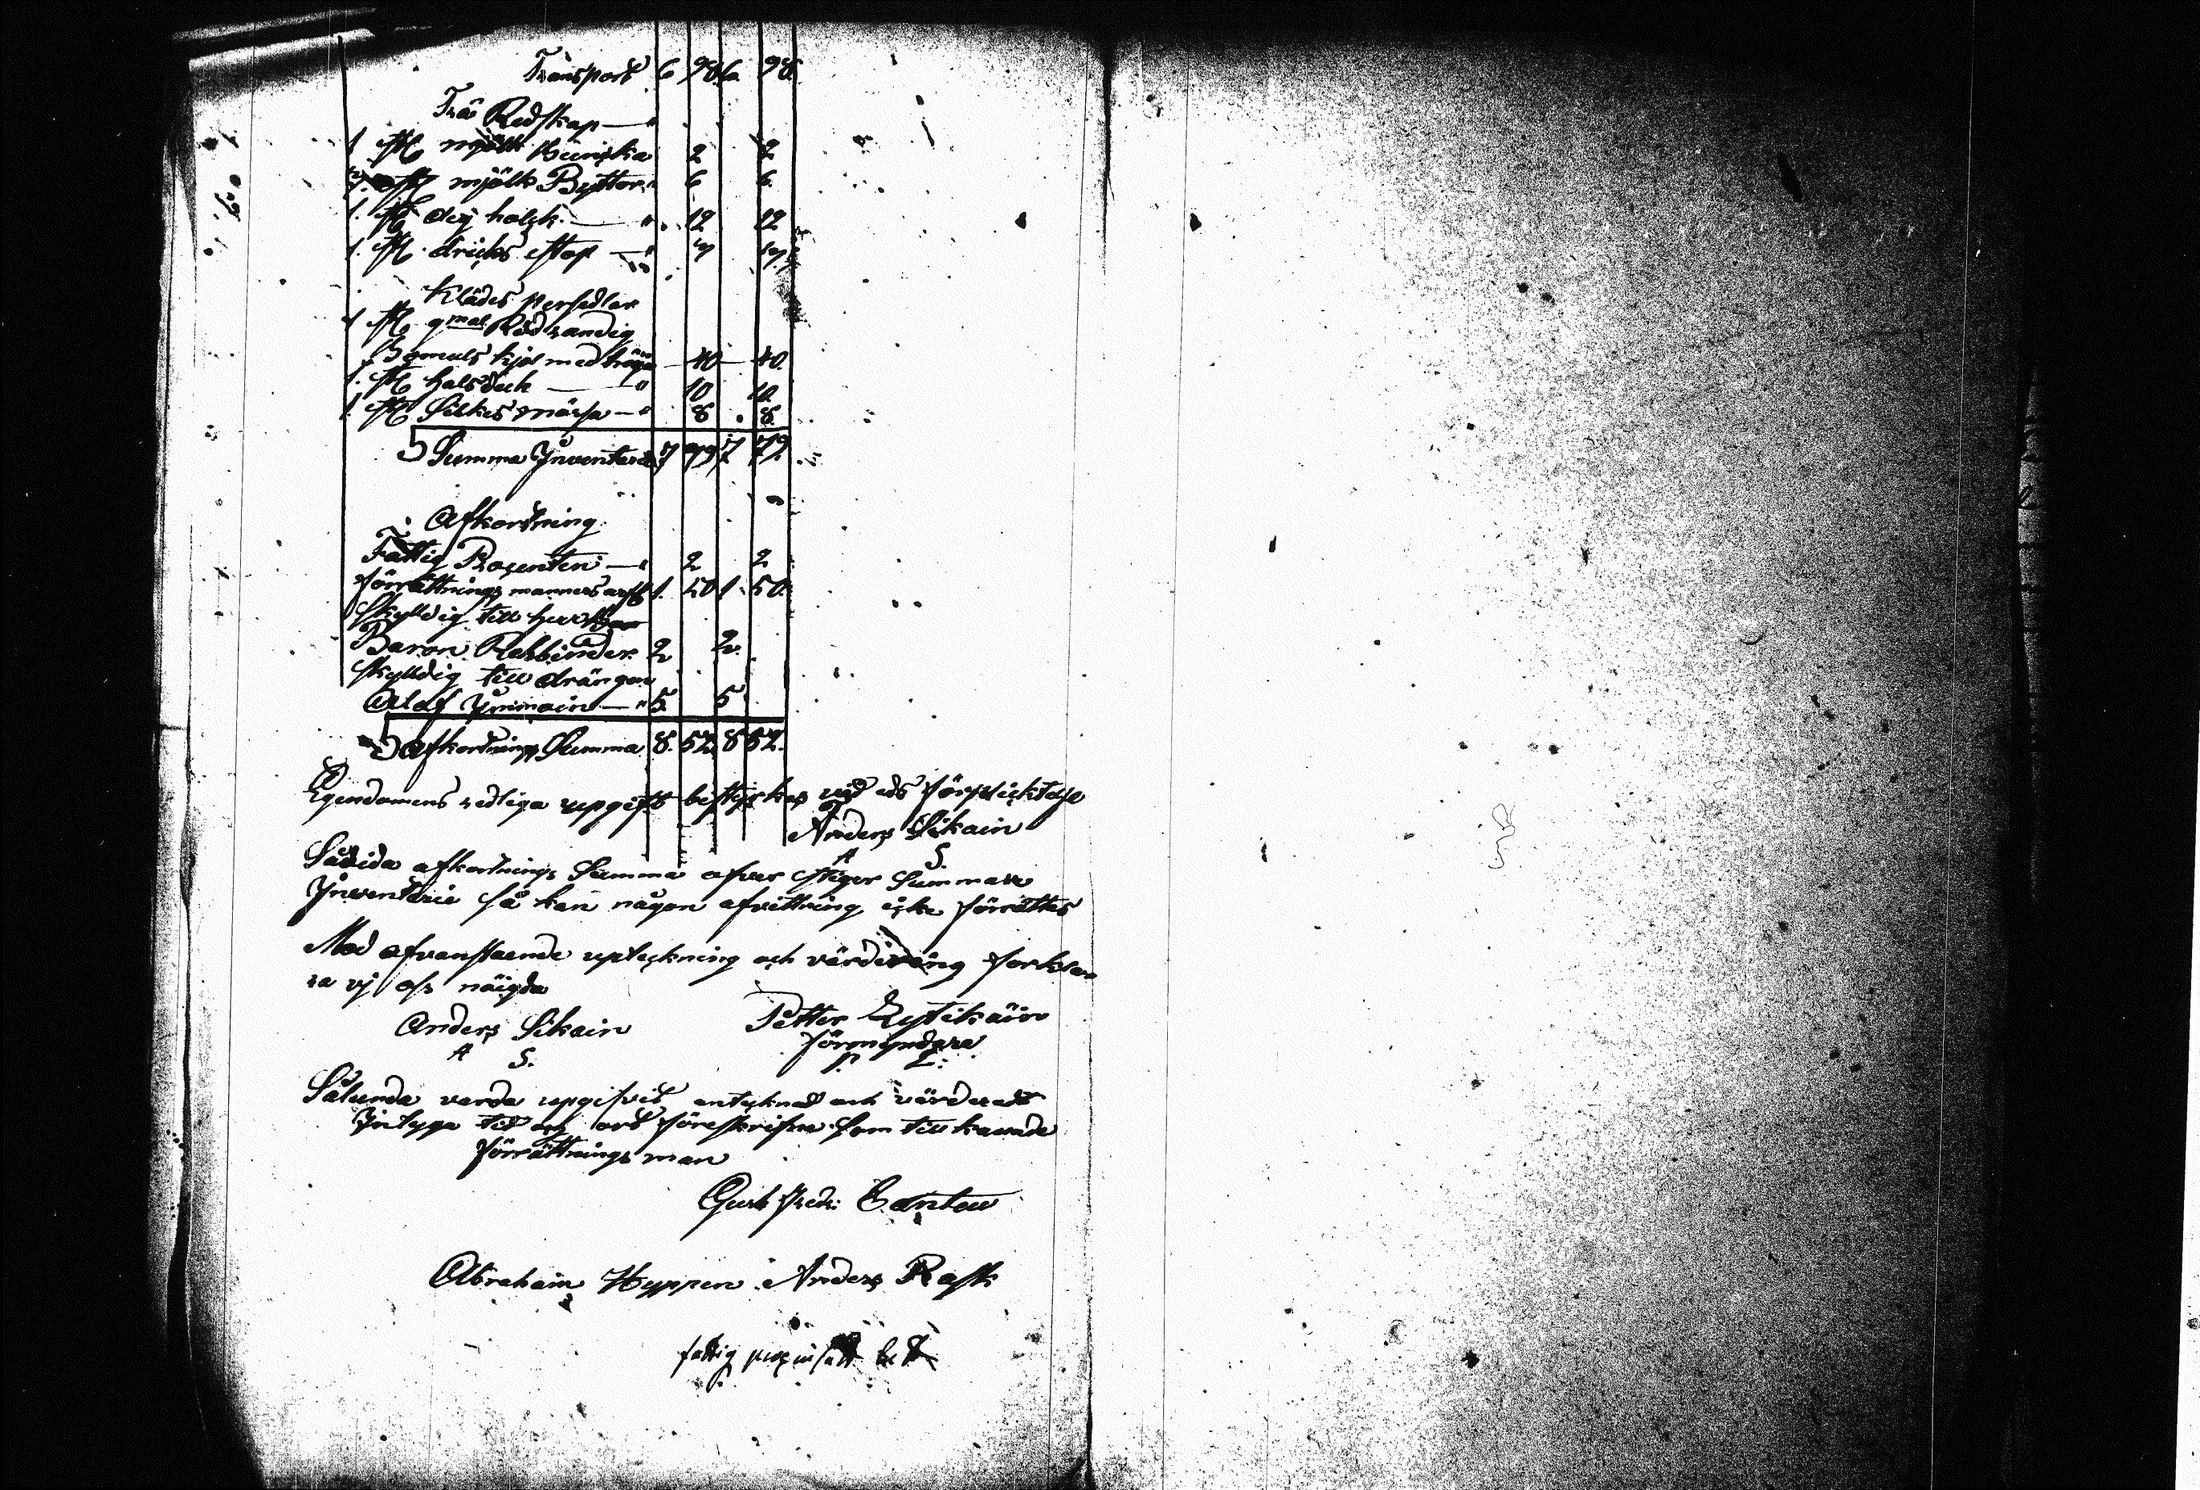 Transport 6 98 6 98
Trä Redskap — "
1 st mjölk Bunka 2 2
2 st mjölk Byttor " 6 6
1. st deg holck — " 12 12
1. st dricks stop — "
Klädes persedlar
1 st gmal Rödrandig
Bomuls kjol med tröja — 40 — 40.
1. st halsduk — " 10 10.
1. st Silkes mössa — " 8 8.
Summa Inventarie 7 7
Afkortning
Fattig Procenten — " 2 2
förrättnings mannens arf 1. 50 1 50.
Skylldig till herr
Baron Rehbinder 2 2
skylldig till drängen
Olof Immoin — " 5. 5
afkortnings Summa 8. 52 8 52.
Egendomens redliga upgift bestyrkes vid eds förplicktelse
Anders Sikain
A S.
Såvida afkortnings Summa öfver stiger Summan
Inventarie så kan någon afvittring icke förrättas
Med ofvanstaende upteckning och värdering forkla
ra vj oss nöigda
Anders Sikain Petter Lystikäin
A S. förmyndare
P. L:
Sålunda varda upgifvit antecknad och värderadt
Intyga tid och ort föreskrifne som till kavade
förrättnings man
Gust Fredr: Cantew
Abraham Hyppen Anders Rask
fattig